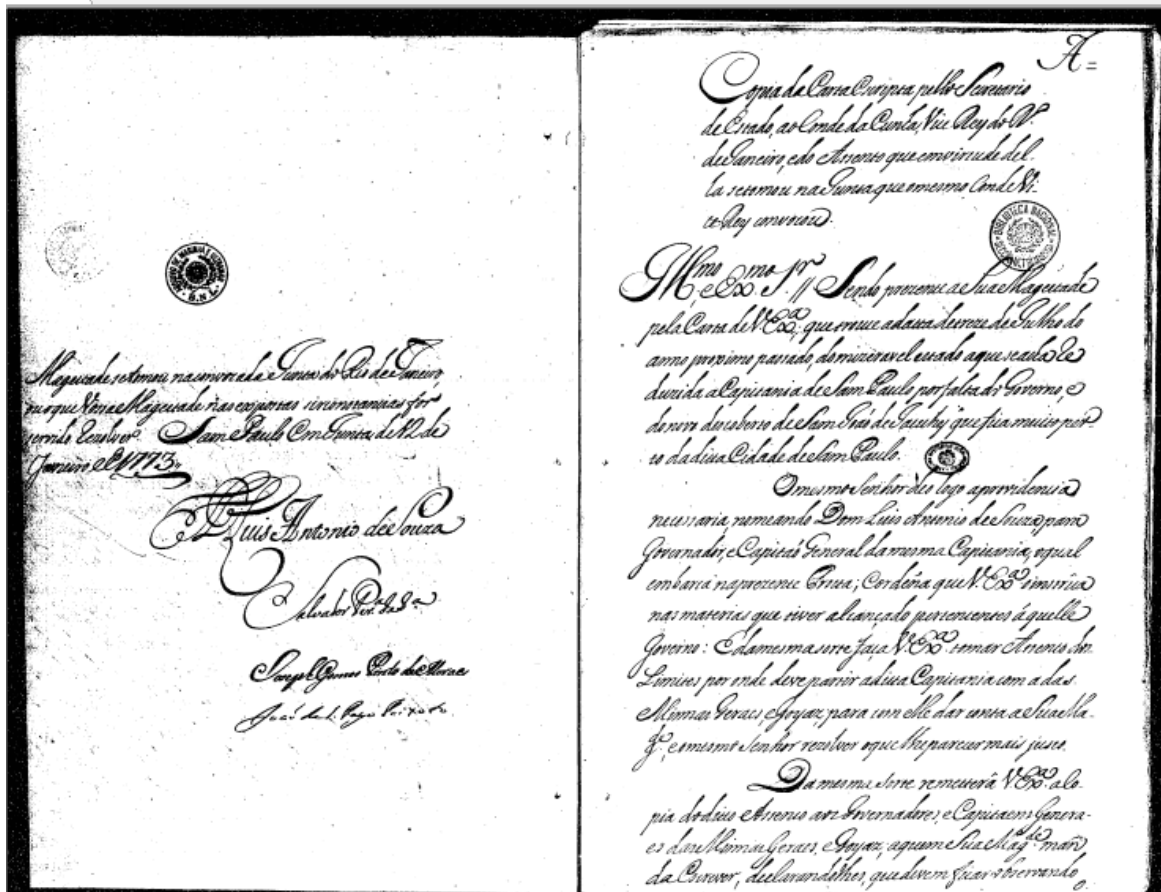 Magestade se tomou na convocada Junta do Rio de Janeiro,
ou o que Vossa Magestade nas expostas sircunstancias for
servido Rezolver. Sam Paulo Em Junta de 12 de
Janeiro de 1773,,
D. Luis Antonio de Souza
Salvador Per.ª da S.ª
Joseph Gomes Pinto de Moraes
A =
Copia da Carta Escripta pello Secretario
de Estado, ao Conde da Cunha, Vice Rey do Rº
de Janeiro, e do Assento que em virtude del-
la se tomou na Junta que o mesmo Conde Vi-
ce Rey convocou.
BIBLIOTECA NACIONAL
Illmo e Exmo Sr // Sendo prezente a Sua Magestade
pela Carta de V. Exª, que trouxe a data de treze de Julho do
anno proximo passado, do mizeravel estado a que se acha Re-
duzida a Capitania de Sam Paulo por falta de Governo, e
do novo descoberto de Sam João de Jacuhy, que fica muito per-
to da dita Cidade de Sam Paulo.
O mesmo Senhor deo logo a providencia
necessaria, nomeando Dom Luis Antonio de Souza, para
Governador, e Capitão General da mesma Capitania, o qual
embarca na prezente Frota; E ordena que V. Exª o instrúa
nas materias que tiver alcançado pertencentes áquelle
Governo: E da mesma sorte faça V. Exª tomar Assento dos
Limites por onde deve partir a dita Capitania com a das
Minnas Geraes, e Goyaz, para com elle dar conta a Sua Ma-
gᵉ, e o mesmo Senhor rezolver o que lhe parecer mais justo.
Da mesma sorte remetterá V. Exª a Co-
pia do dito Assento aos Governadores, e Capitaens Genera-
es das Minnas Geraes, e Goyaz, a quem Sua Magᵈᵉ man-
da Escrever, declarandolhes, que devem ficar observando